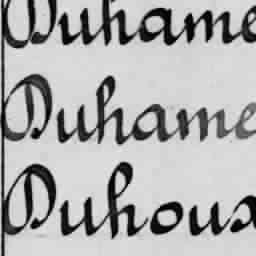 Duhame
Duhame
Duhoux